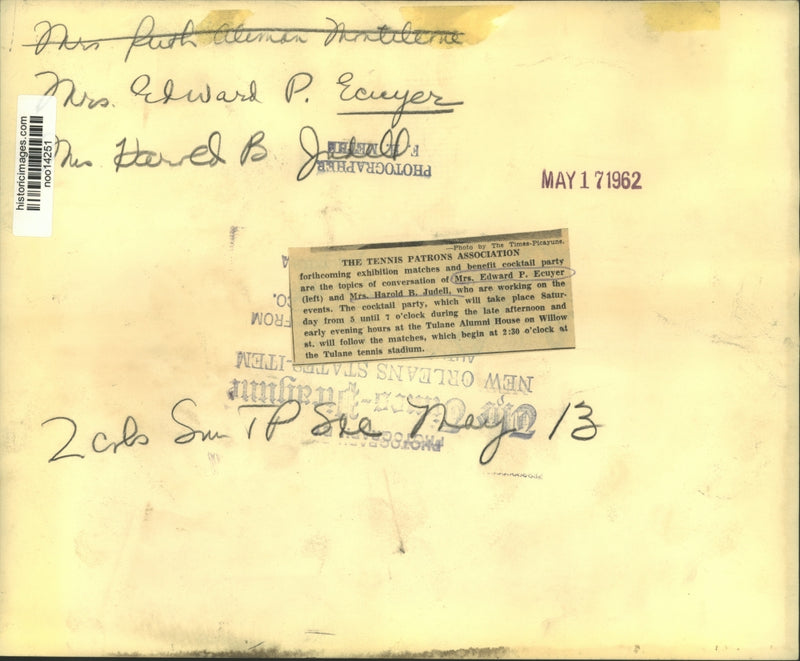 Mrs Ruth Aleman Monteleone
Mrs. Edward P. Ecuyer
Mrs Harold B Judell
PHOTOGRAPHER
historicimages.com
noo14251
MAY 17 1962
—Photo by The Times-Picayune.
THE TENNIS PATRONS ASSOCIATION
forthcoming exhibition matches and benefit cocktail party
are the topics of conversation of Mrs. Edward P. Ecuyer
(left) and Mrs. Harold B. Judell, who are working on the
events. The cocktail party, which will take place Satur-
day from 5 until 7 o'clock during the late afternoon and
early evening hours at the Tulane Alumni House on Willow
st. will follow the matches, which begin at 2:30 o'clock at
the Tulane tennis stadium.
CO.
FROM
NEW ORLEANS STATES-ITEM
The Times-Picayune
PHOTOGRAPH
2 cols Sun TP Soc May 13